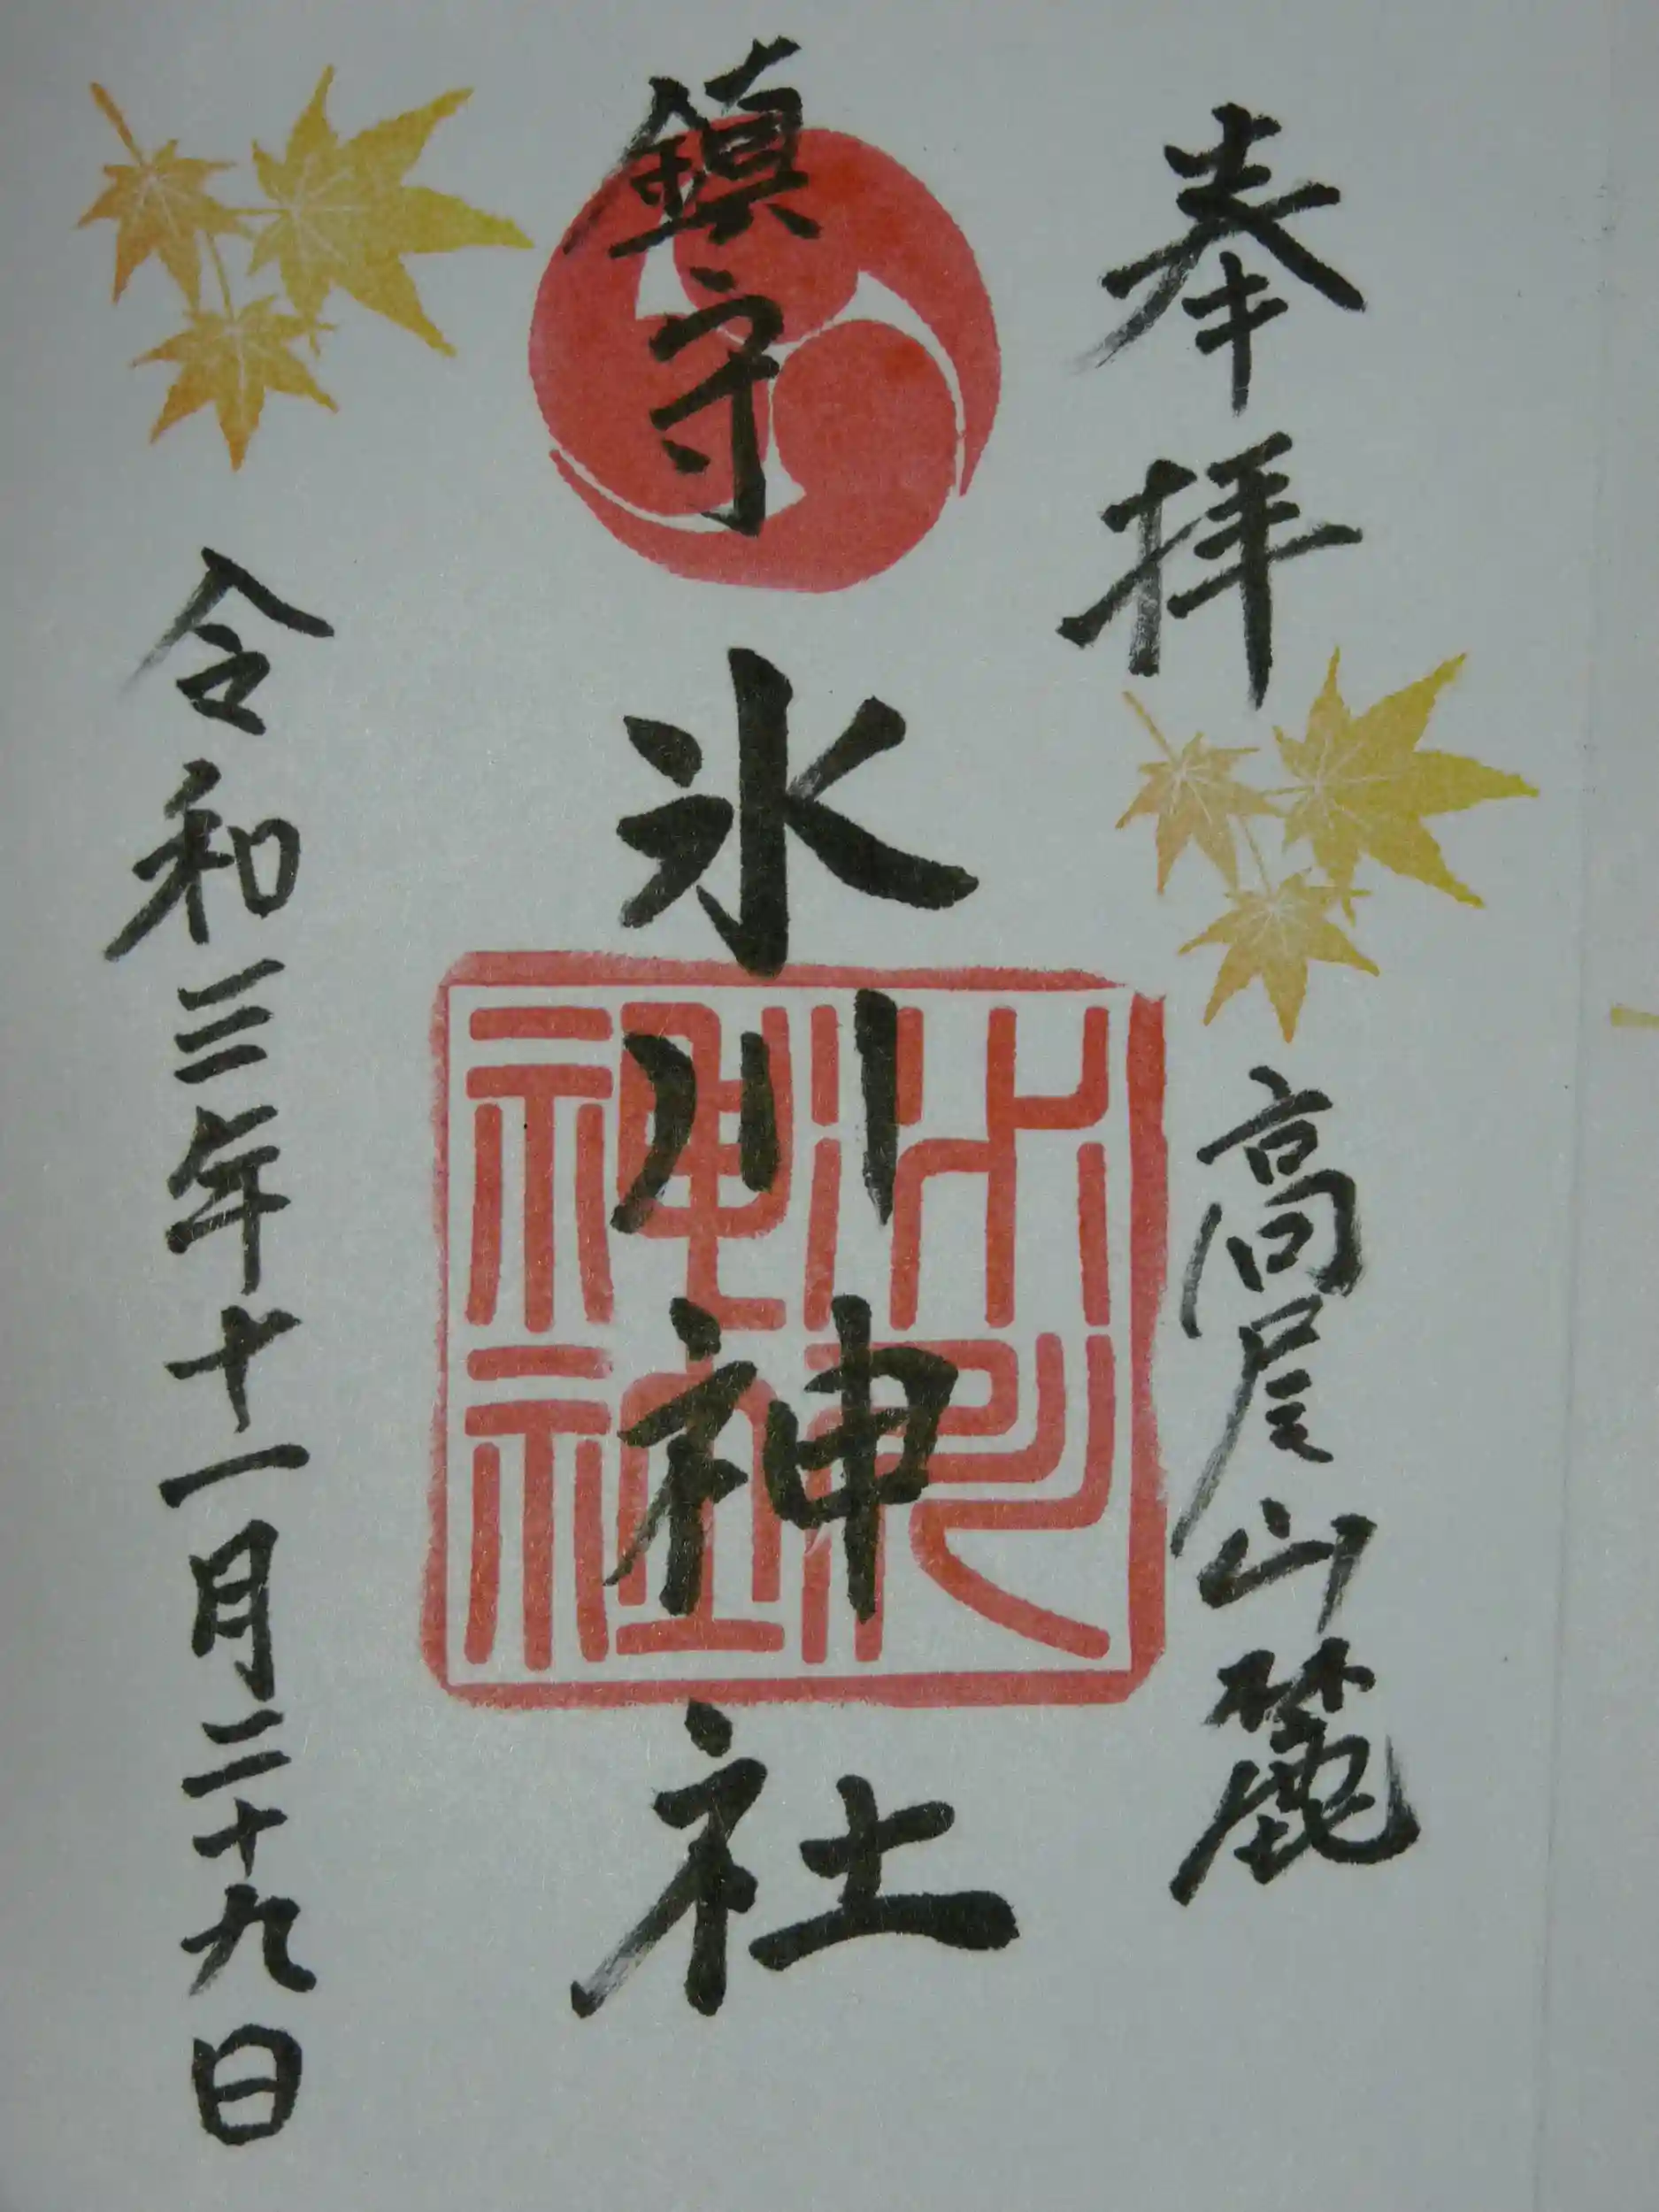 奉拝
高尾山麓
鎮守
氷川神社
氷川神社
令和三年十一月二十九日